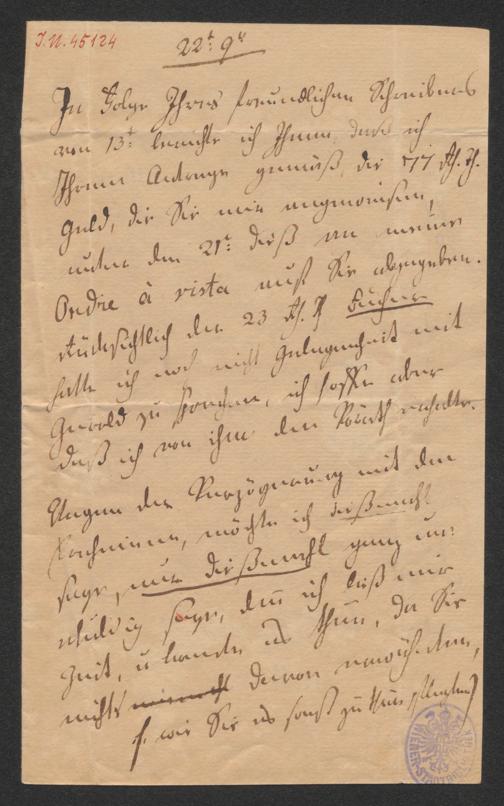 I.N. 45124
22t 9r
In Folge Ihres freundlichen Schreibens
vom 13t berichte ich Ihnen, daß ich
Ihrem Antrage gemäß, die 77 rh. Th.
Geld, die Sie mir angewiesen,
unter dem 21t dieß an meine
Ordre à vista auf Sie abgegeben.
Rücksichtlich der 23 rh. Th
hatte ich noch nicht Gelegenheit mit
Gerold zu sprechen, ich hoffe aber
daß ich von ihm den erhalte.
Wegen der Verzögerung mit den
möchte ich dießmahl
sage, nur dießmahl ganz un¬
schuldig sage, denn ich ließ mir
Zeit, u konnte es thun, da Sie
nichts davon erwähnten,
(wie Sie es sonst zu thun pflegten)
WIENER STADTBIBLIOTHEK